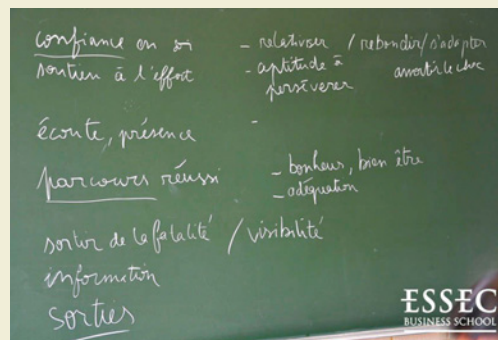 confiance en soi - relativiser / rebondir / s'adapter
soutien à l'effort - aptitude à persévérer amortir le choc
écoute, présence -
parcours réussi - bonheur, bien être
- adéquation
sortir de la fatalité / visibilité
information
sorties
ESSEC
BUSINESS SCHOOL